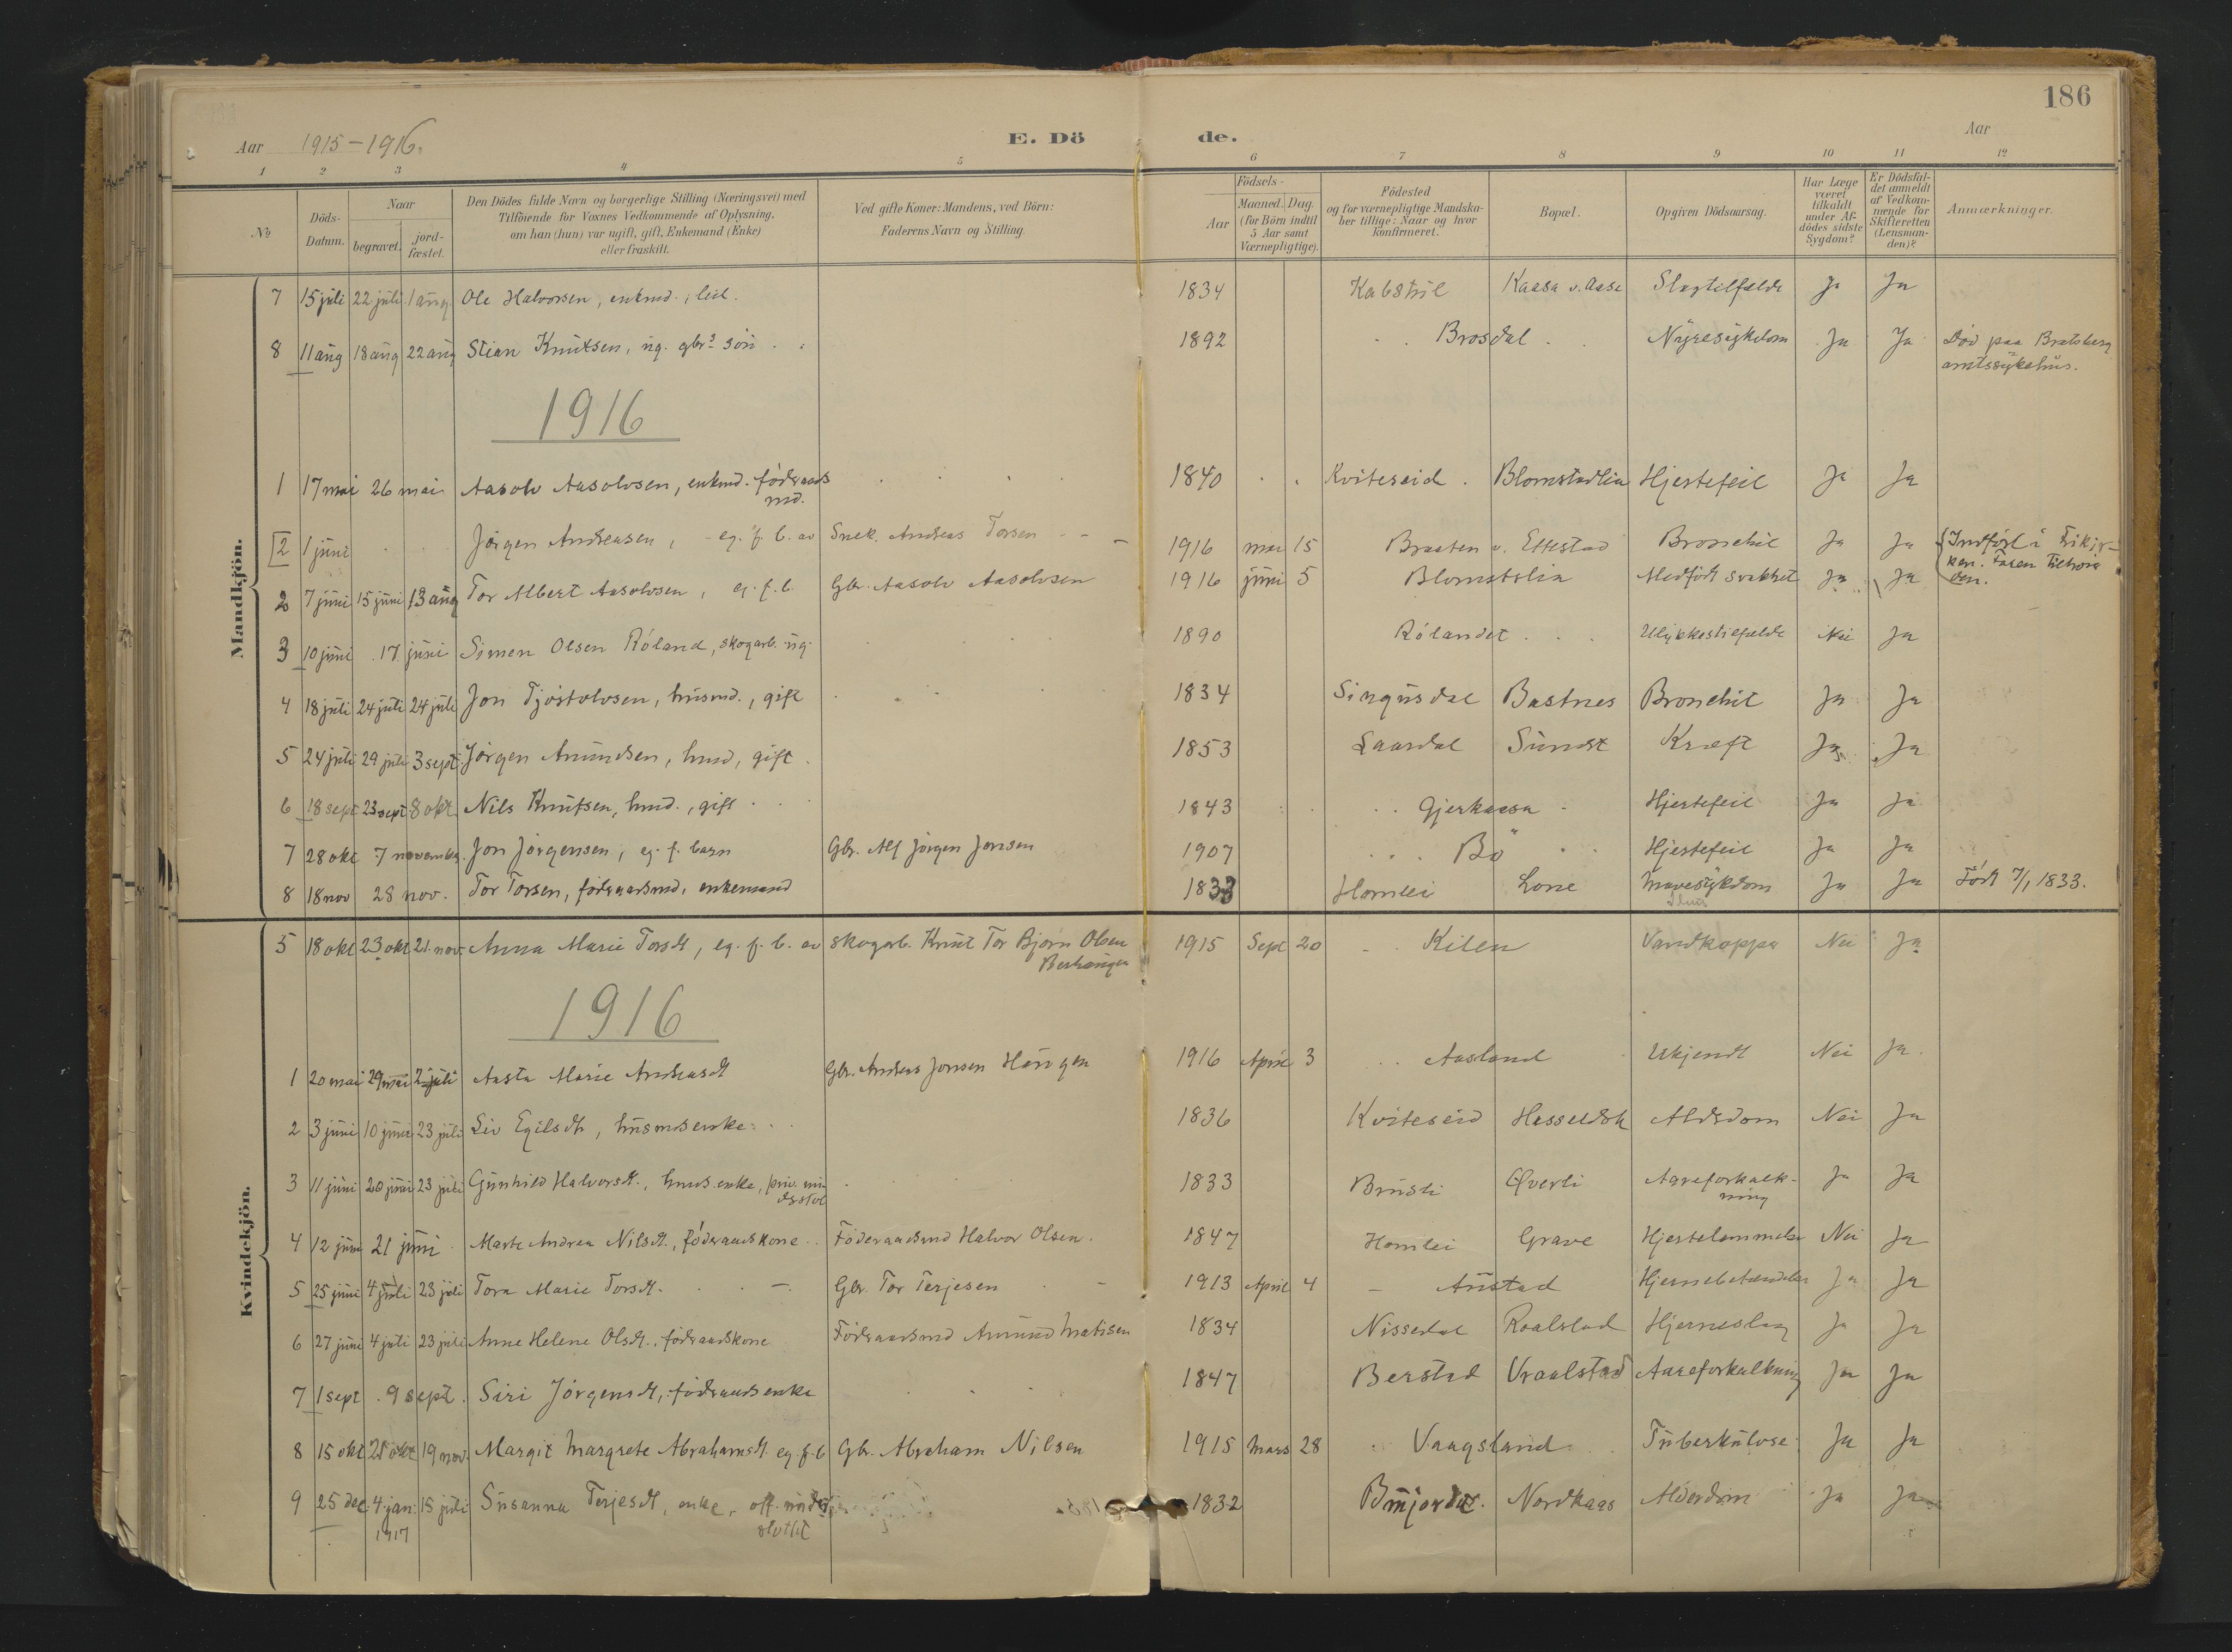 186
Aar 1915-1916. E. Dö de. Aar
1 2 3 4 5 6 7 8 9 10 11 12
№
Döds-Datum.
Naar
begravet. jord-fæstet.
Den Dödes fulde Navn og borgerlige Stilling (Næringsvei) med
Tilföiende for Voxnes Vedkommende af Oplysning,
om han (hun) var ugift, gift, Enkemand (Enke)
eller fraskilt.
Ved gifte Koner: Mandens, ved Börn:
Faderens Navn og Stilling.
Födsels-
Aar
Maaned. Dag.
(for Börn indtil
5 Aar samt
Værnepligtige).
Födested
og for værnepligtige Mandska-
ber tillige: Naar og hvor
konfirmeret.
Bopæl.
Opgiven Dödsaarsag.
Har Læge
været
tilkaldt
under Af-
dödes sidste
Sygdom?
Er Dödsfal-
det anmeldt
af Vedkom-
mende for
Skifteretten
(Lensman-
den)?
Anmærkninger.
Mandkjön.
7 15 juli 22 juli 1 aug Ole Halvorsen, enkmd., 1834 Kabstul Kaasa v. Aase Slagtilfælde Ja Ja
8 11 aug 18 aug 22 aug Stian Knutsen, ug. gbrs sön 1892 Brosdal Nyresykdom Ja Ja Död paa Bratsberg
amtssykehus.
1916
1 17 mai 26 mai Aasolv Aasolvsen, enkmd. föderaads 1840 Kviteseid Blomstadlia Hjertefeil Ja Ja
md.
2 1 juni Jörgen Andreasen, eg. f. b. av Snek. Andreas Torsen 1916 mai 15 Braaten v. Eftestad Bronchit Ja Ja Indfört i Frikir-
ken. Faren tilhører
den.
2 7 juni 15 juni 13 aug Tor Albert Aasolvsen, eg. f. b. Gbr. Aasolv Aasolvsen 1916 juni 5 Blomstlia Medfödt svakhet Ja Ja
3 10 juni 17 juni Simen Olsen Röland, skogarb. ug. 1890 Rölandet Ulykkestilfælde Nei Ja
4 18 juli 24 juli 24 juli Jon Tjöstolvsen, husmd., gift 1834 Singusdal Bastnes Bronchit Ja Ja
5 24 juli 29 juli 3 sept. Jörgen Amundsen, hmd, gift 1853 Laardal Sundt Kræft Ja Ja
6 18 sept 23 sept 8 okt. Nils Knutsen, hmd., gift 1843 Gjerkaasa Hjertefeil Ja Ja
7 28 okt 7 novembr. Jon Jörgensen, eg. f. barn Gbr. Alf Jörgen Jonsen 1907 Bö Hjertefeil Ja Ja
8 18 nov 28 nov. Tor Torsen, föderaadsmd, enkemand 1833 Homlei Lone Mavesykdom Ja Ja Födt 7/1 1833.
Kvindekjön.
5 18 okt 23 okt 21. nov. Anna Marie Torsdt, eg. f. b. av skogarb. Knut Tor Björn Olsen 1915 Sept 20 Kilen Vandkopper Nei Ja
1916
1 20 mai 29 mai 2 juli Aasta Marie Andreasdt Gbr. Andreas Jonsen Haugen 1916 April 3 Aasland Ukjendt Nei Ja
2 3 juni 10 juni 23 juli Liv Egilsdt, husmdsenke 1836 Kviteseid Alderdom Nei Ja
3 11 juni 20 juni 23 juli Gunhild Halvorsdt., hmds. enke, priv. un- 1833 Brusli Qverli Aareforkalk-
derstöt ning Ja Ja
4 12 juni 21 juni Marte Andrea Nilsdt., föderaadskone Föderaadsmd Halvor Olsen. 1847 Homlei Grave Hjertelammelse Nei Ja
5 25 juni 4 juli 23 juli Tora Marie Torsdt. Gbr. Tor Terjesen 1913 April 4 Austad Hjernebetændelse Ja Ja
6 27 juni 4 juli 23 juli Anne Helene Olsdt., föderaadskone Föderaadsmd Amund Matisen 1834 Nissedal Roalstad Hjerneslag Ja Ja
7 1 sept 9 sept. Siri Jörgensdt, föderaadsenke 1847 Berstad Vraalstad Aareforkalkning Ja Ja
8 15 okt 21 okt 19 nov. Margit Margrete Abrahamsdt. eg. f. b Gbr. Abraham Nilsen 1915 Mars 28 Vaagsland Tuberkulose Ja Ja
9 25 dec. 4 jan. 15 juli Susanna Terjesdt, enke, off. under- 1832 Nordkaas Alderdom Ja Ja
1917 støttet